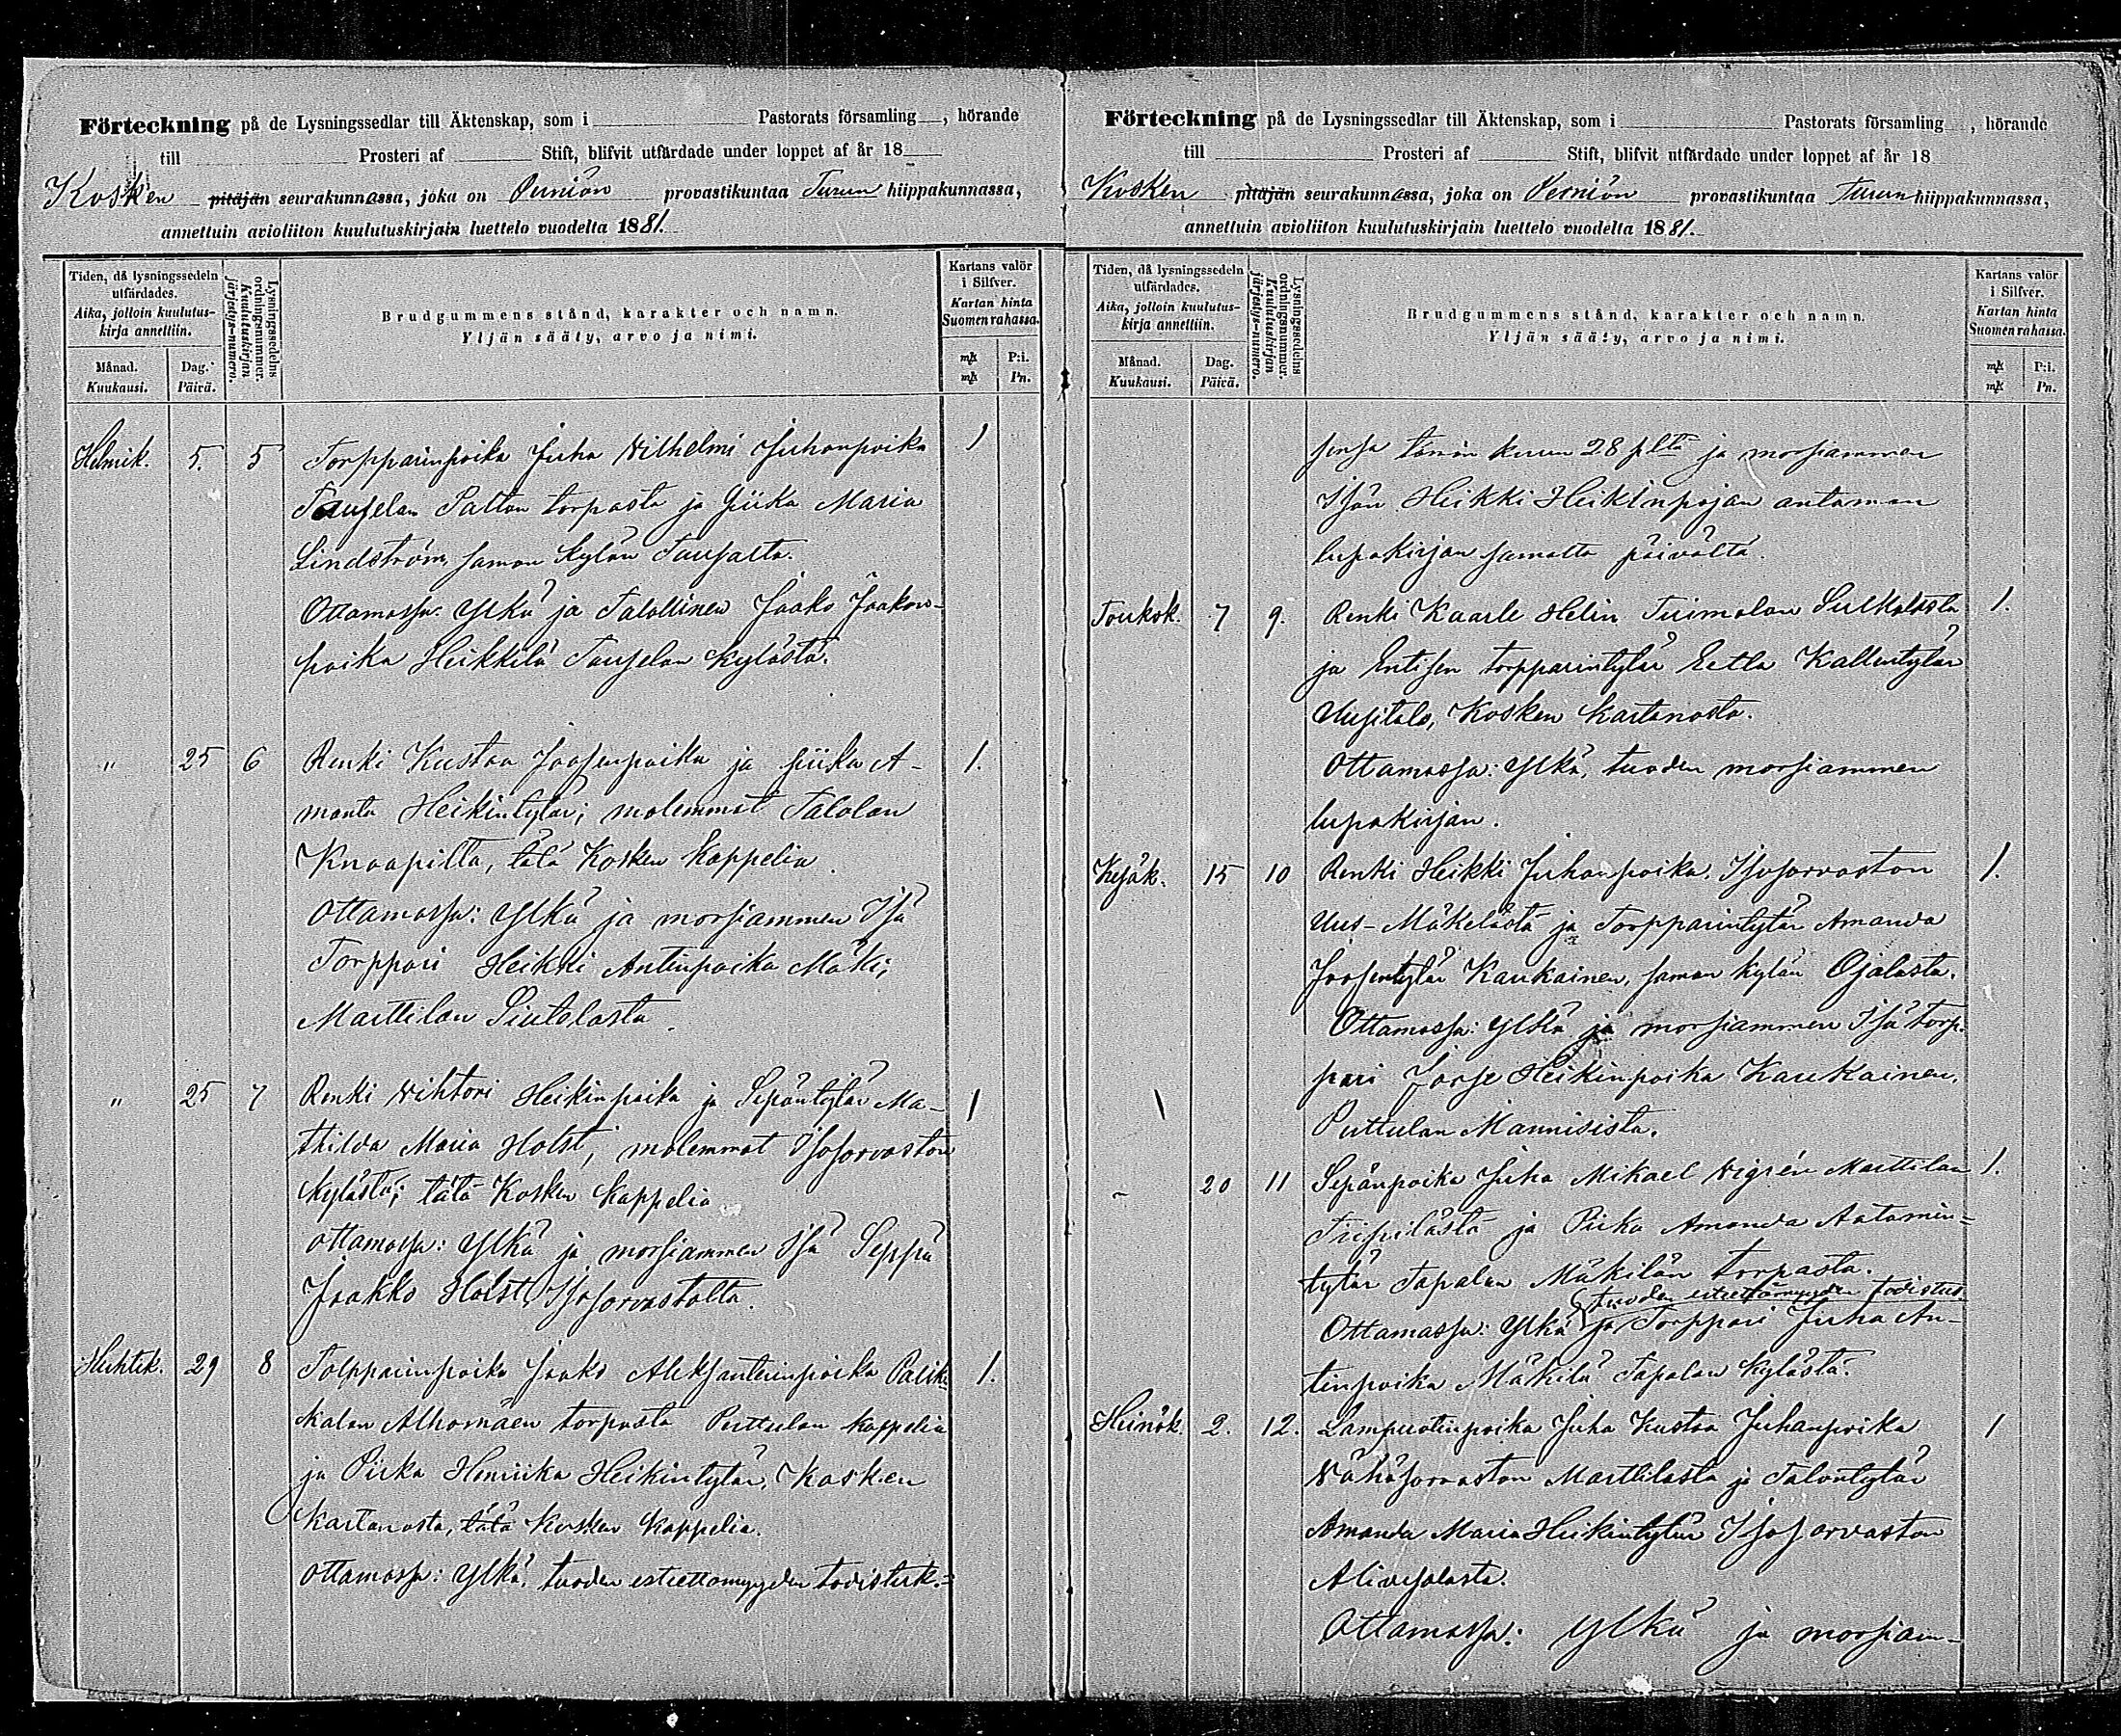 Förteckning på de Lysningssedlar till Äktenskap, som i Pastorats församling , hörande
till Prosteri af Stift, blifvit utfärdade under loppet af år 18
Kosken pitäjän seurakunnassa, joka on Perniön provastikuntaa Turun hiippakunnassa,
annettuin avioliiton kuulutuskirjain luettelo vuodelta 1881.
Tiden, då lysningssedeln utfärdades.
Aika, jolloin kuulutus-
kirja annettiin.
Månad.
Kuukausi.
Dag.
Päivä.
Lysningssedelns ordningsnummer.
Kuulutuskirjan järjestys-numero.
Brudgummens stånd, karakter och namn.
Yljän sääty, arvo ja nimi.
Kartans valör i Silfver.
Kartan hinta Suomen rahassa.
mk P:i.
mk Pn.
Helmik. 5. 5 Torpparinpoika Juha Vilhelmi Juhanpoika 1
Taufelan Paltan torpasta ja Piika Maria
Lindström, saman kylän
Ottamassa: Ylkä ja Talollinen Jaako Jaakon-
poika Heikkilä Taufelan kylästä.
" 25 6 Renki Kustaa Joosenpoika ja piika A- 1.
manta Heikintytär; molemmat Talolan
Knaapilta, tätä Kosken kappelia.
Ottamassa: Ylkä ja morsiammen Isä
Torppari Heikki Antinpoika Mäki,
Marttilan
" 25 7 Renki Vihtori Heikinpoika ja Sepäntytär Ma- 1
thilda Maria Holst, molemmat Isosorvaston
kylästä; tätä Kosken kappelia
ottamassa: Ylkä ja morsiammen Isä Seppä
Jaakko Holst, Isosorvastolta.
Huhtik. 29 8 Tolpparinpoika Jaako Aleksanterinpoika Palik- 1.
kalan Alhomäen torpasta Puttulan kappelia
ja Piika Henriika Heikintytär, Kosken
kartanosta, tätä Kosken kappelia.
Ottamassa: Ylkä, tuoden esteettömyyden todistuk-
Förteckning på de Lysningssedlar till Äktenskap, som i Pastorats församling , hörande
till Prosteri af Stift, blifvit utfärdade under loppet af år 18
Kosken pitäjän seurakunnassa, joka on Perniön provastikuntaa Turun hiippakunnassa,
annettuin avioliiton kuulutuskirjain luettelo vuodelta 1881.
Tiden, då lysningssedeln utfärdades.
Aika, jolloin kuulutus-
kirja annettiin.
Månad.
Kuukausi.
Dag.
Päivä.
Lysningssedelns ordningsnummer.
Kuulutuskirjan järjestys-numero.
Brudgummens stånd, karakter och namn.
Yljän sääty, arvo ja nimi.
Kartans valör i Silfver.
Kartan hinta Suomen rahassa.
mk P:i.
mk Pn.
sensa tämän kuun 28 p:ltä ja morsiammen
Isän Heikki Heikinpojan antaman
lupakirjan samalta päivältä.
Toukok. 7 9. Renki Kaarle Helin Tuimalan Sulkalasta 1.
ja Entisen torpparintytär Eetla Kallentytär
Uusitalo, Kosken kartanosta.
Ottamassa: Ylkä, tuoden morsiammen
lupakirjan.
Kesäk. 15 10 Renki Heikki Juhanpoika, Isosorvaston 1.
Uus-Mäkelästä ja Torpparintytär Amanda
Joosentytär Kaukainen, saman kylän Ojalasta.
Ottamassa: Ylkä ja morsiammen Isä torp-
pari Joose Heikinpoika Kaukainen,
Puttulan Mannisista.
20 11 Sepänpoika Juha Mikael Vigrén Marttilan 1.
Tiipilästä ja Piika Amanda Aatamin-
tytär Tapalan Mäkilän torpasta.
tuoden esteettömyyden todistus.
Ottamassa: Ylkä ja Torppari Juha An-
tinpoika Mäkilä Tapalan kylästä.
Heinäk. 2. 12. Lampuotinpoika Juha Kustaa Juhanpoika 1
Vähäsorvaston Marttilasta ja Talontytär
Amanda Maria Heikintytär Isosorvaston
Alivesalasta.
Ottamassa: Ylkä ja morsiam-